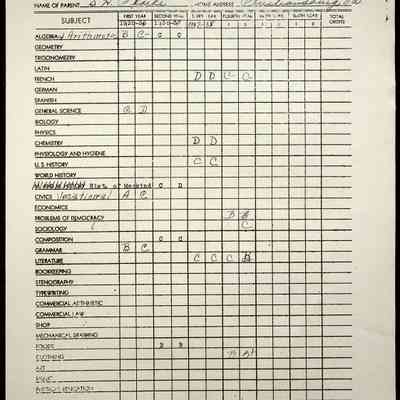 NAME OF PARENT HOME ADDRESS Christiansburg, Va
SUBJECT FIRST YEAR SECOND YEAR FOURTH YEAR SIXTH YEAR TOTAL CREDITS
ALGEBRA Arithmetic B C
GEOMETRY
TRIGONOMETRY
LATIN
FRENCH D D C C
GERMAN
SPANISH
GENERAL SCIENCE C D
BIOLOGY
PHYSICS
CHEMISTRY D D
PHYSIOLOGY AND HYGIENE
U. S. HISTORY C C
WORLD HISTORY
HISTORY Hist. of C D
CIVICS Vocational A C
ECONOMICS
PROBLEMS OF DEMOCRACY B B
SOCIOLOGY C
COMPOSITION C C
GRAMMAR B C
LITERATURE C C C B
BOOKKEEPING
STENOGRAPHY
TYPEWRITING
COMMERCIAL ARITHMETIC
COMMERCIAL LAW
SHOP
MECHANICAL DRAWING
FOODS B B
CLOTHING
ART
MUSIC
PHYSICAL EDUCATION